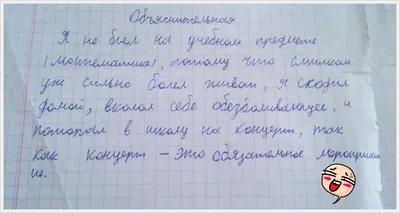 Объяснительная
Я не был на учебном предмете
(математика), потому что слишком
уж сильно болел живот, я сходил
домой, вколол себе обезболивающее, и
потопал в школу на концерт, так
как концерт – это обязательное мероприят
ие.